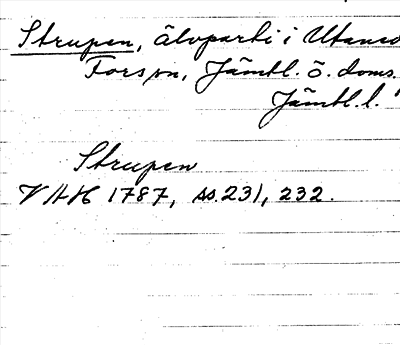 Strupen, älvparti i Utanede
Fors sn, Jämtl. ö. doms.
Jämtl. l.
Strupen
VAH 1787, ss. 231, 232.